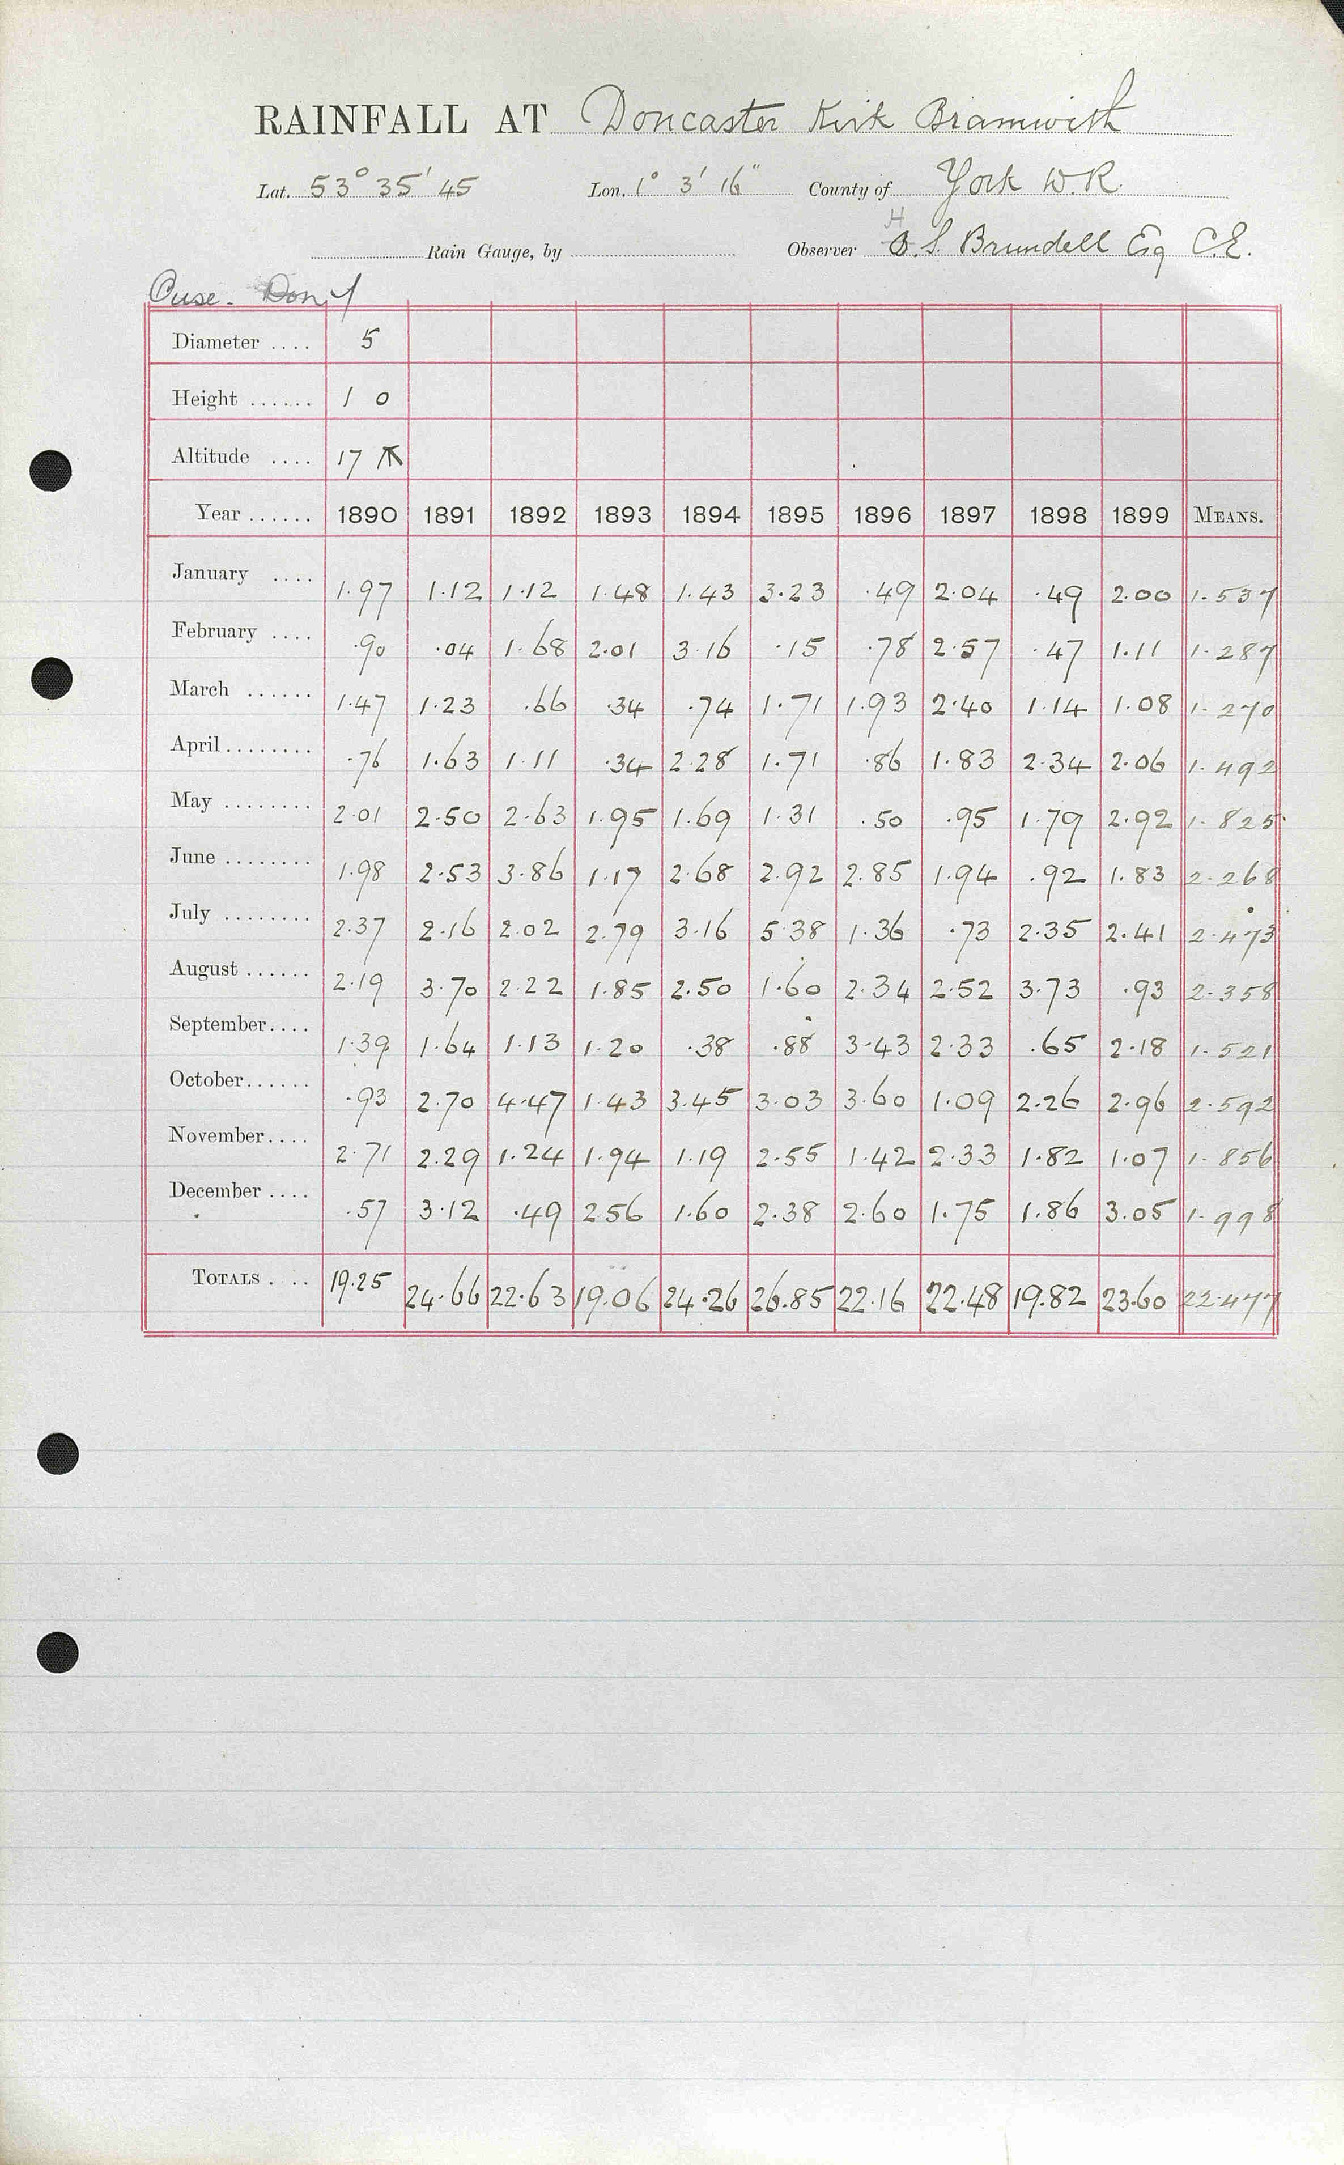 RAINFALL AT Doncaster Kirk Bramwith
Lat. 53° 35' 45 Lon. 1° 3' 16" County of York W.R.
Rain Gauge, by Observer H B. S. Brundell Esq C.E.
Ouse. Don
Diameter .... 5
Height ...... 1 0
Altitude .... 17
Year ...... 1890 1891 1892 1893 1894 1895 1896 1897 1898 1899 MEANS.
January .... 1.97 1.12 1.12 1.48 1.43 3.23 .49 2.04 .49 2.00 1.537
February .... .90 .04 1.68 2.01 3.16 .15 .78 2.57 .47 1.11 1.287
March ...... 1.47 1.23 .66 .34 .74 1.71 1.93 2.40 1.14 1.08 1.270
April ........ .76 1.63 1.11 .34 2.28 1.71 .86 1.83 2.34 2.06 1.492
May ........ 2.01 2.50 2.63 1.95 1.69 1.31 .50 .95 1.79 2.92 1.825
June ........ 1.98 2.53 3.86 1.17 2.68 2.92 2.85 1.94 .92 1.83 2.268
July ........ 2.37 2.16 2.02 2.79 3.16 5.38 1.36 .73 2.35 2.41 2.473
August ...... 2.19 3.70 2.22 1.85 2.50 1.60 2.34 2.52 3.73 .93 2.358
September.... 1.39 1.64 1.13 1.20 .38 .88 3.43 2.33 .65 2.18 1.521
October...... .93 2.70 4.47 1.43 3.45 3.03 3.60 1.09 2.26 2.96 2.592
November.... 2.71 2.29 1.24 1.94 1.19 2.55 1.42 2.33 1.82 1.07 1.856
December .... .57 3.12 .49 2.56 1.60 2.38 2.60 1.75 1.86 3.05 1.998
TOTALS . .. 19.25 24.66 22.63 19.06 24.26 26.85 22.16 22.48 19.82 23.60 22.477